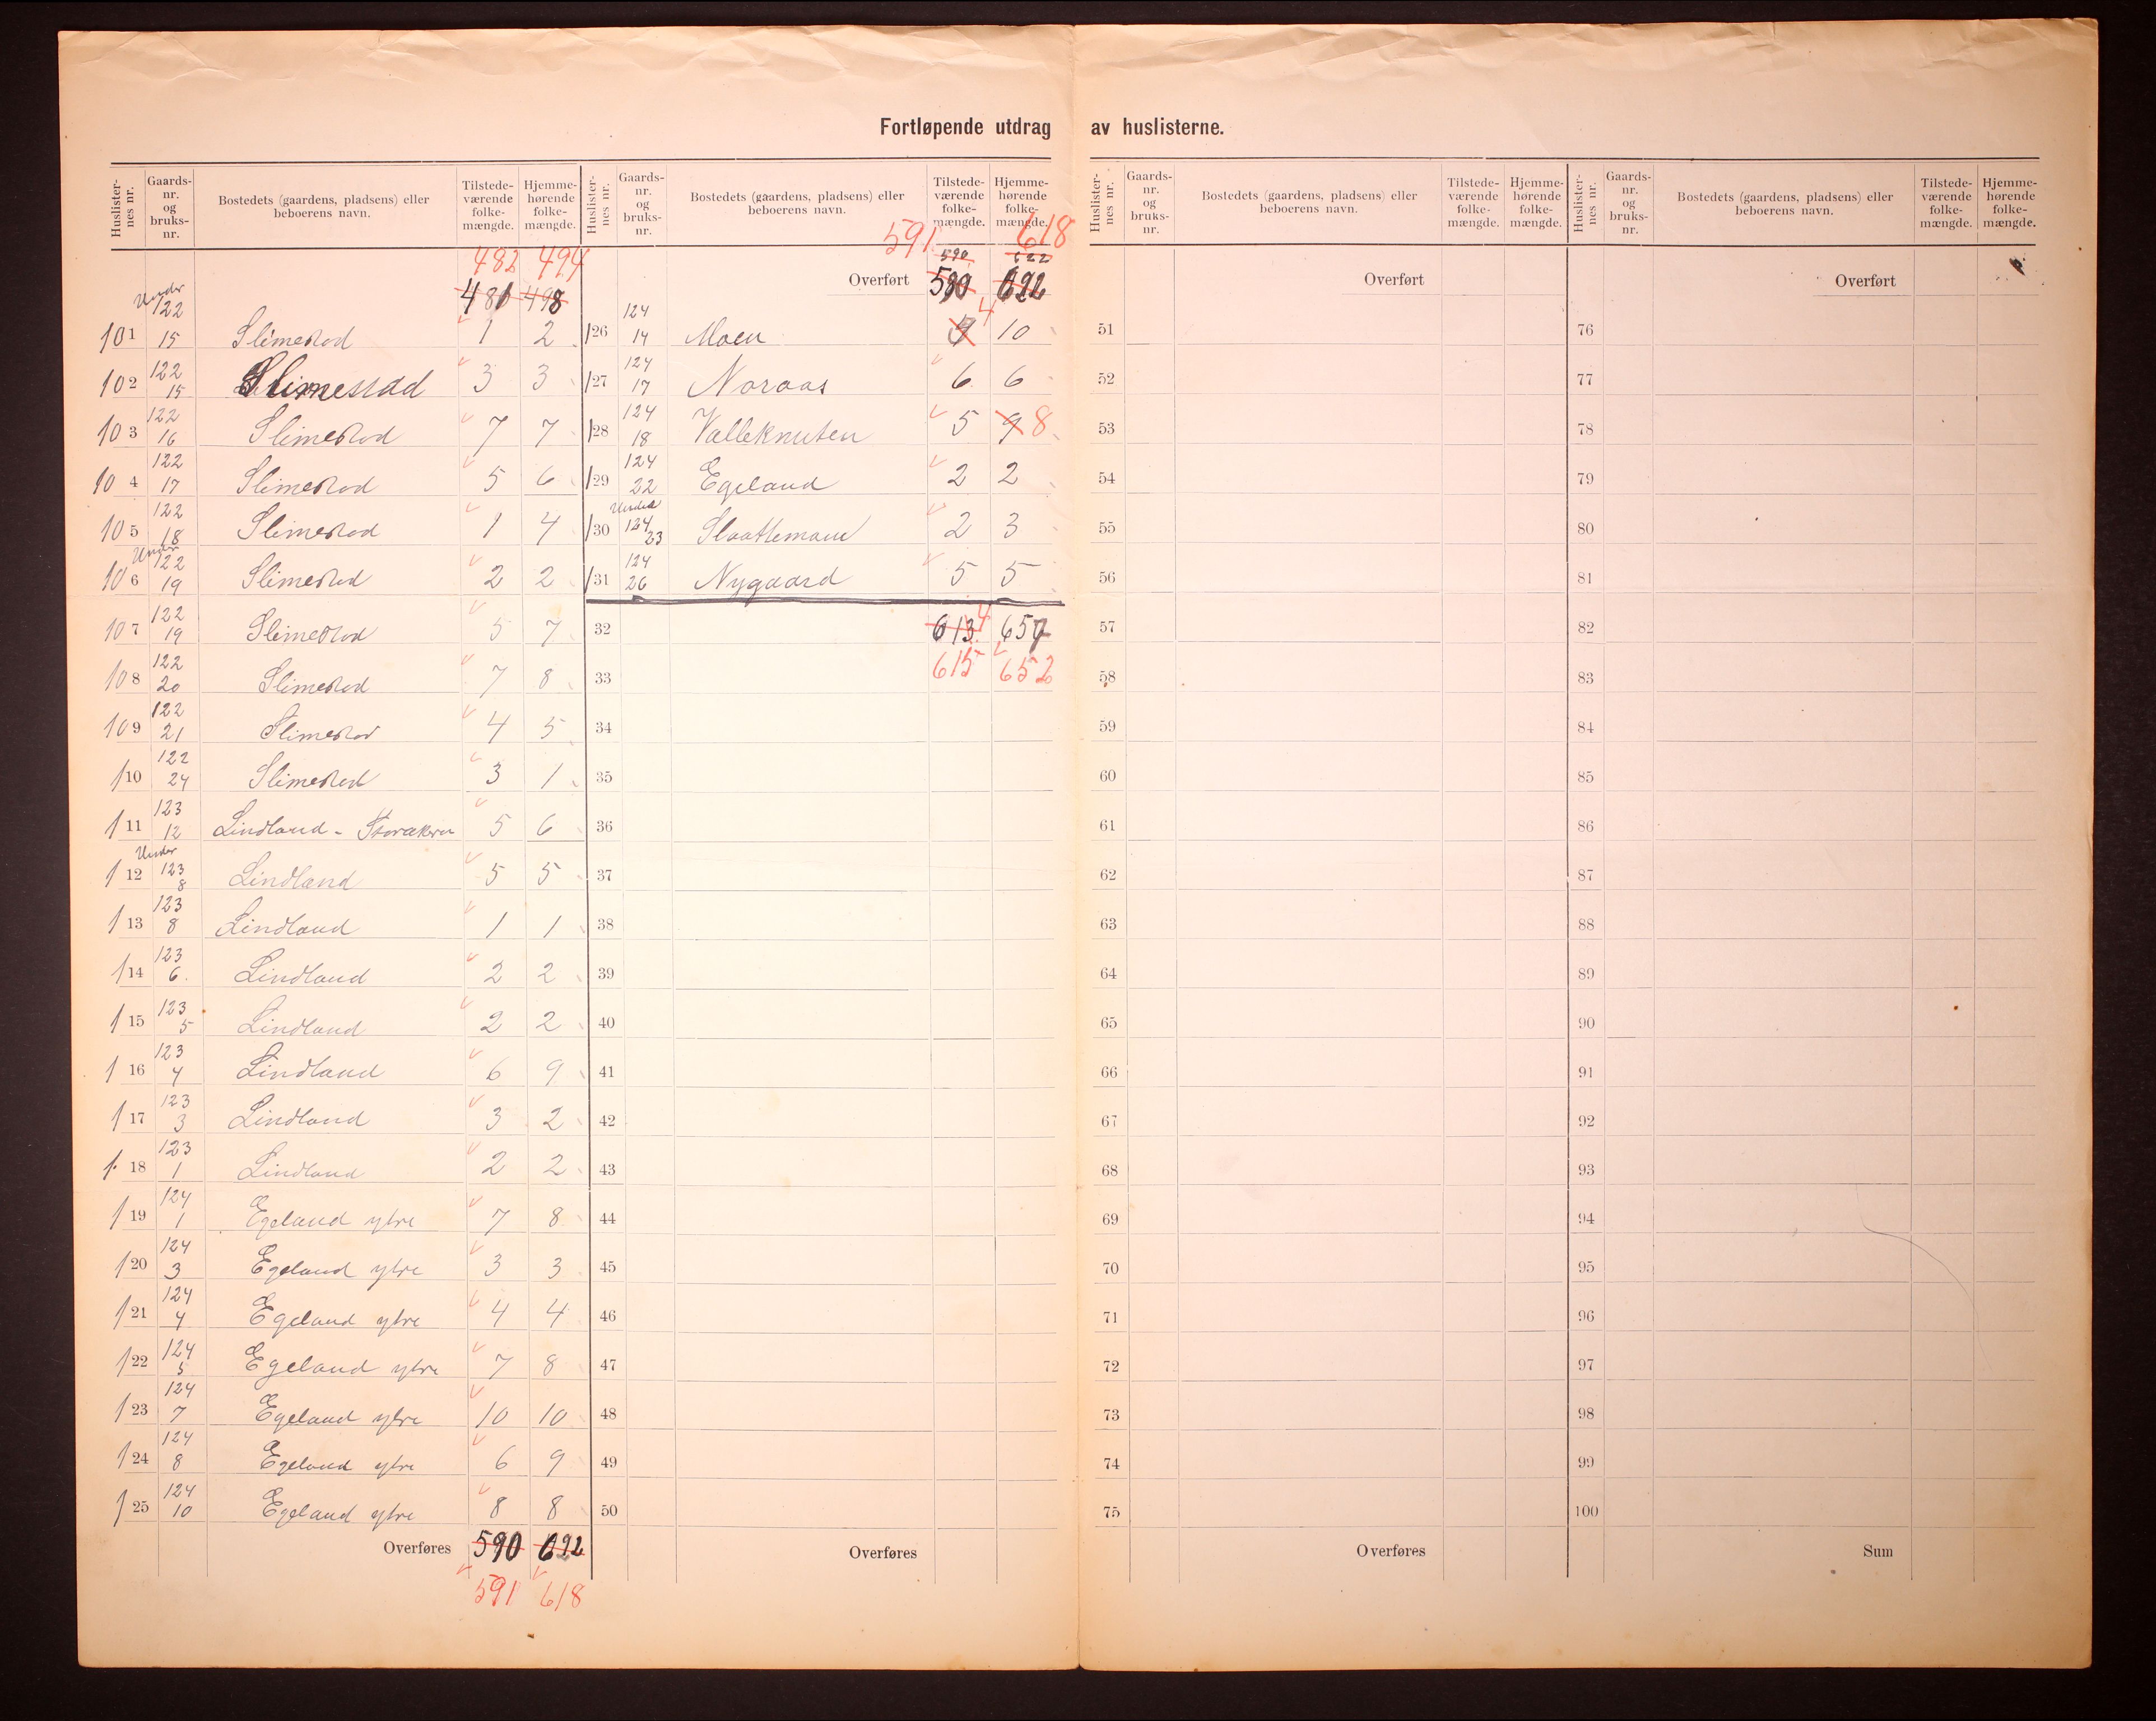 Fortløpende utdrag av huslisternes.
Huslisternes nr. Gaards-nr. og bruks-nr. Bostedets (gaardens, pladsens) eller beboerens navn. Tilstedeværende folkemængde. Hjemmehørende folkemængde.
482 494
481 498
Under
101 122 15 Slimestad 1 2
102 122 15 Slimestad 3 3
103 122 16 Slimestad 7 7
104 122 17 Slimestad 5 6
105 122 18 Slimestad 1 4
106 Under 122 19 Slimestad 2 2
107 122 19 Slimestad 5 7
108 122 20 Slimestad 7 8
109 122 21 Slimestad 4 5
110 122 24 Slimestad 3 1
111 123 12 Lindland - Storakern 5 6
112 Under 123 8 Lindland 5 5
113 123 8 Lindland 1 1
114 123 6. Lindland 2 2
115 123 5 Lindland 2 2
116 123 4 Lindland 6 9
117 123 3 Lindland 3 2
118 123 1 Lindland 2 2
119 124 1 Egeland ytre 7 8
120 124 3 Egeland ytre 3 3
121 124 4 Egeland ytre 4 4
122 124 5 Egeland ytre 7 8
123 124 7 Egeland ytre 10 10
124 124 8 Egeland ytre 6 9
125 124 10 Egeland ytre 8 8
Overføres 590 622
591 618
Huslisternes nr. Gaards-nr. og bruks-nr. Bostedets (gaardens, pladsens) eller beboerens navn. Tilstedeværende folkemængde. Hjemmehørende folkemængde.
591 618
590 622
Overført 590 622
126 124 14 Moen 4 10
127 124 17 Noraas 6 6
128 124 18 Valleknuten 5 9 8
129 124 22 Egeland 2 2
130 Under 124 23 Slaattemoen 2 3
131 124 26 Nygaard 5 5
32 613 4 657
33 615 652
34
35
36
37
38
39
40
41
42
43
44
45
46
47
48
49
50
Overføres
Huslisternes nr. Gaards-nr. og bruks-nr. Bostedets (gaardens, pladsens) eller beboerens navn. Tilstedeværende folkemængde. Hjemmehørende folkemængde.
Overført
51
52
53
54
55
56
57
58
59
60
61
62
63
64
65
66
67
68
69
70
71
72
73
74
75
Overføres
Huslisternes nr. Gaards-nr. og bruks-nr. Bostedets (gaardens, pladsens) eller beboerens navn. Tilstedeværende folkemængde. Hjemmehørende folkemængde.
Overført
76
77
78
79
80
81
82
83
84
85
86
87
88
89
90
91
92
93
94
95
96
97
98
99
100
Sum